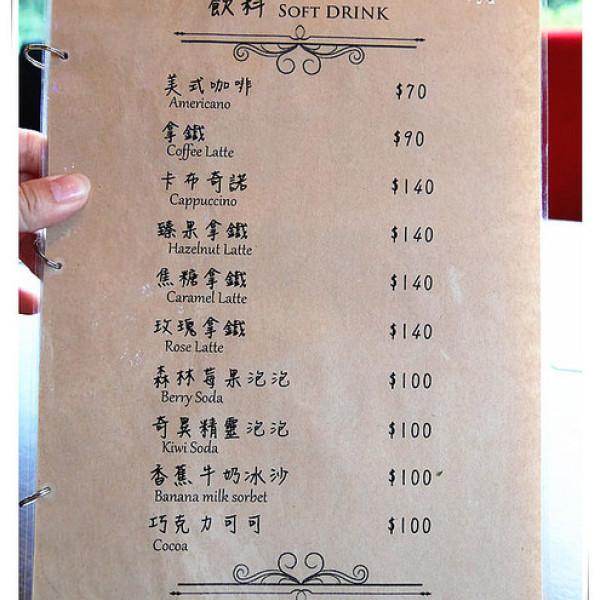 飲料 SOFT DRINK
美式咖啡 $70
Americano
拿鐵 $90
Coffee Latte
卡布奇諾 $140
Cappuccino
臻果拿鐵 $140
Hazelnut Latte
焦糖拿鐵 $140
Caramel Latte
玫瑰拿鐵 $140
Rose Latte
森林莓果泡泡 $100
Berry Soda
奇異精靈泡泡 $100
Kiwi Soda
香蕉牛奶冰沙 $100
Banana milk sorbet
巧克力可可 $100
Cocoa